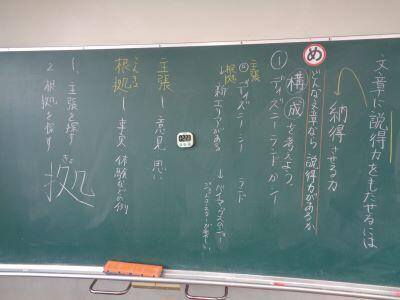 文章に説得力をもたせるには
納得させる力
め
どんな文章なら説得力があるか
① 構成を考えよう。
ディズニーランドかシー
主張
根拠
ディズニーシー
ランド
↓新エリアがある
主張ー意見 思い
こんきょ
根拠ー事実 体験などの例
1、主張を探す
2 根拠を探す
きょ
拠